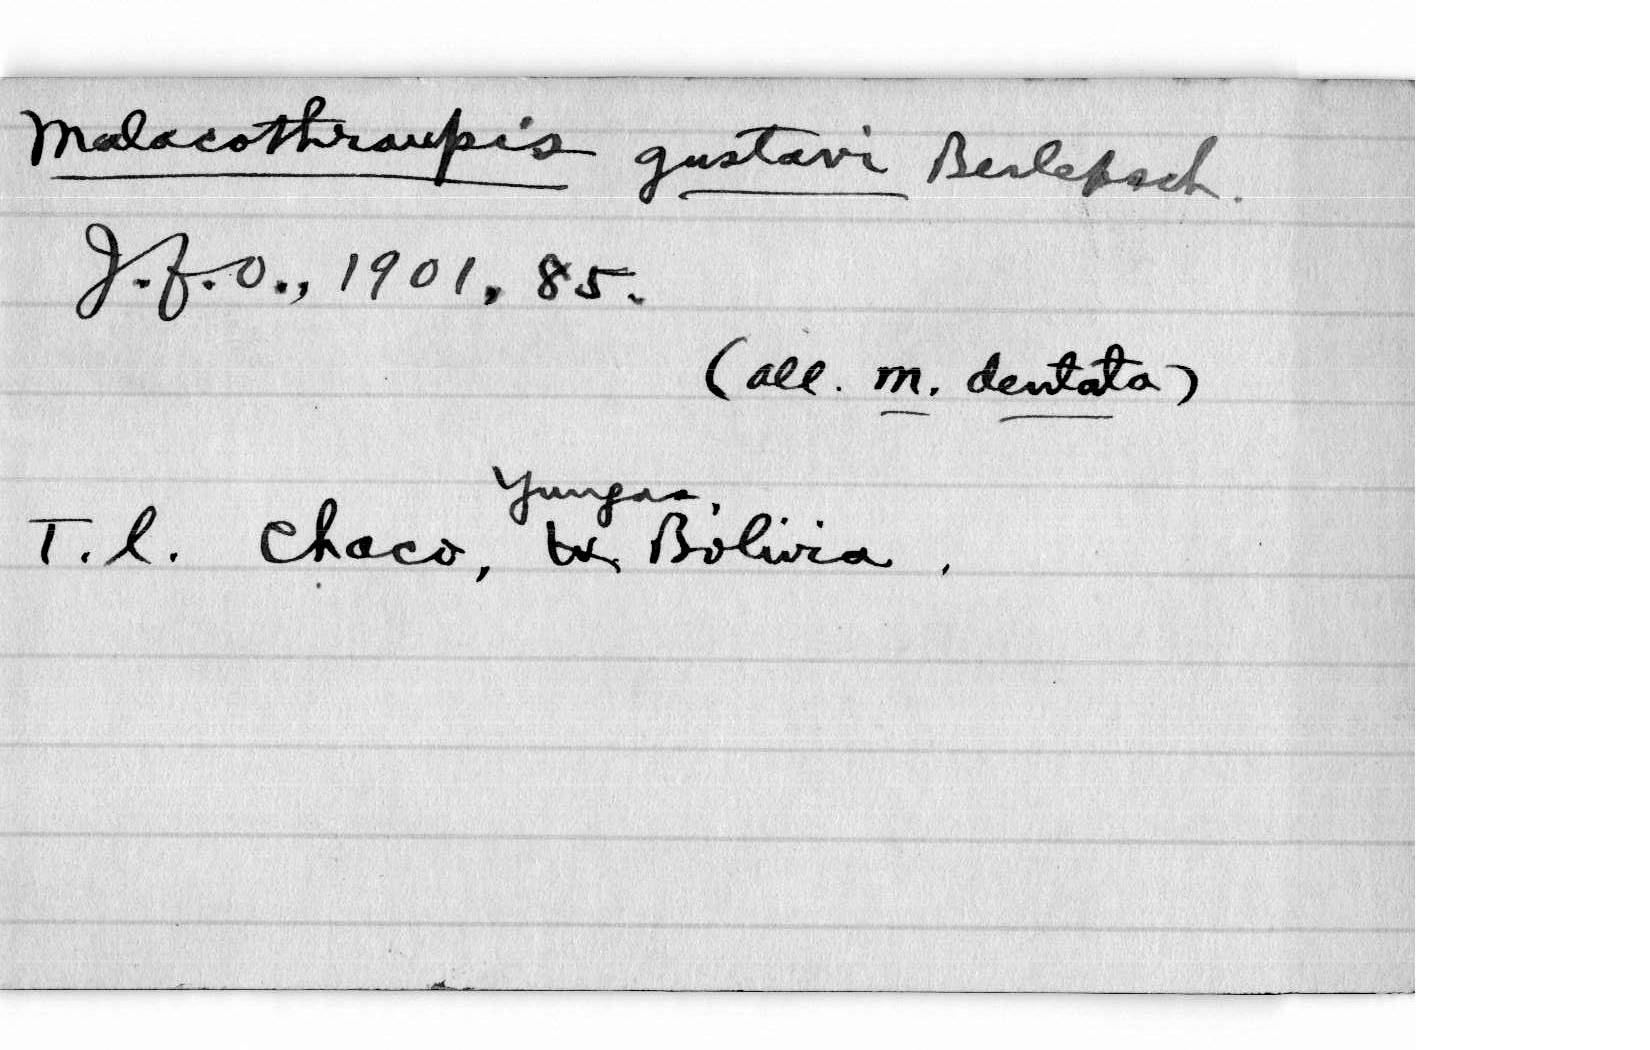 Malacothraupis gustavi Berlepsch.
J.f.O., 1901, 85.
(all. M. dentata)
Yungas,
T.l. Chaco, Bolivia.